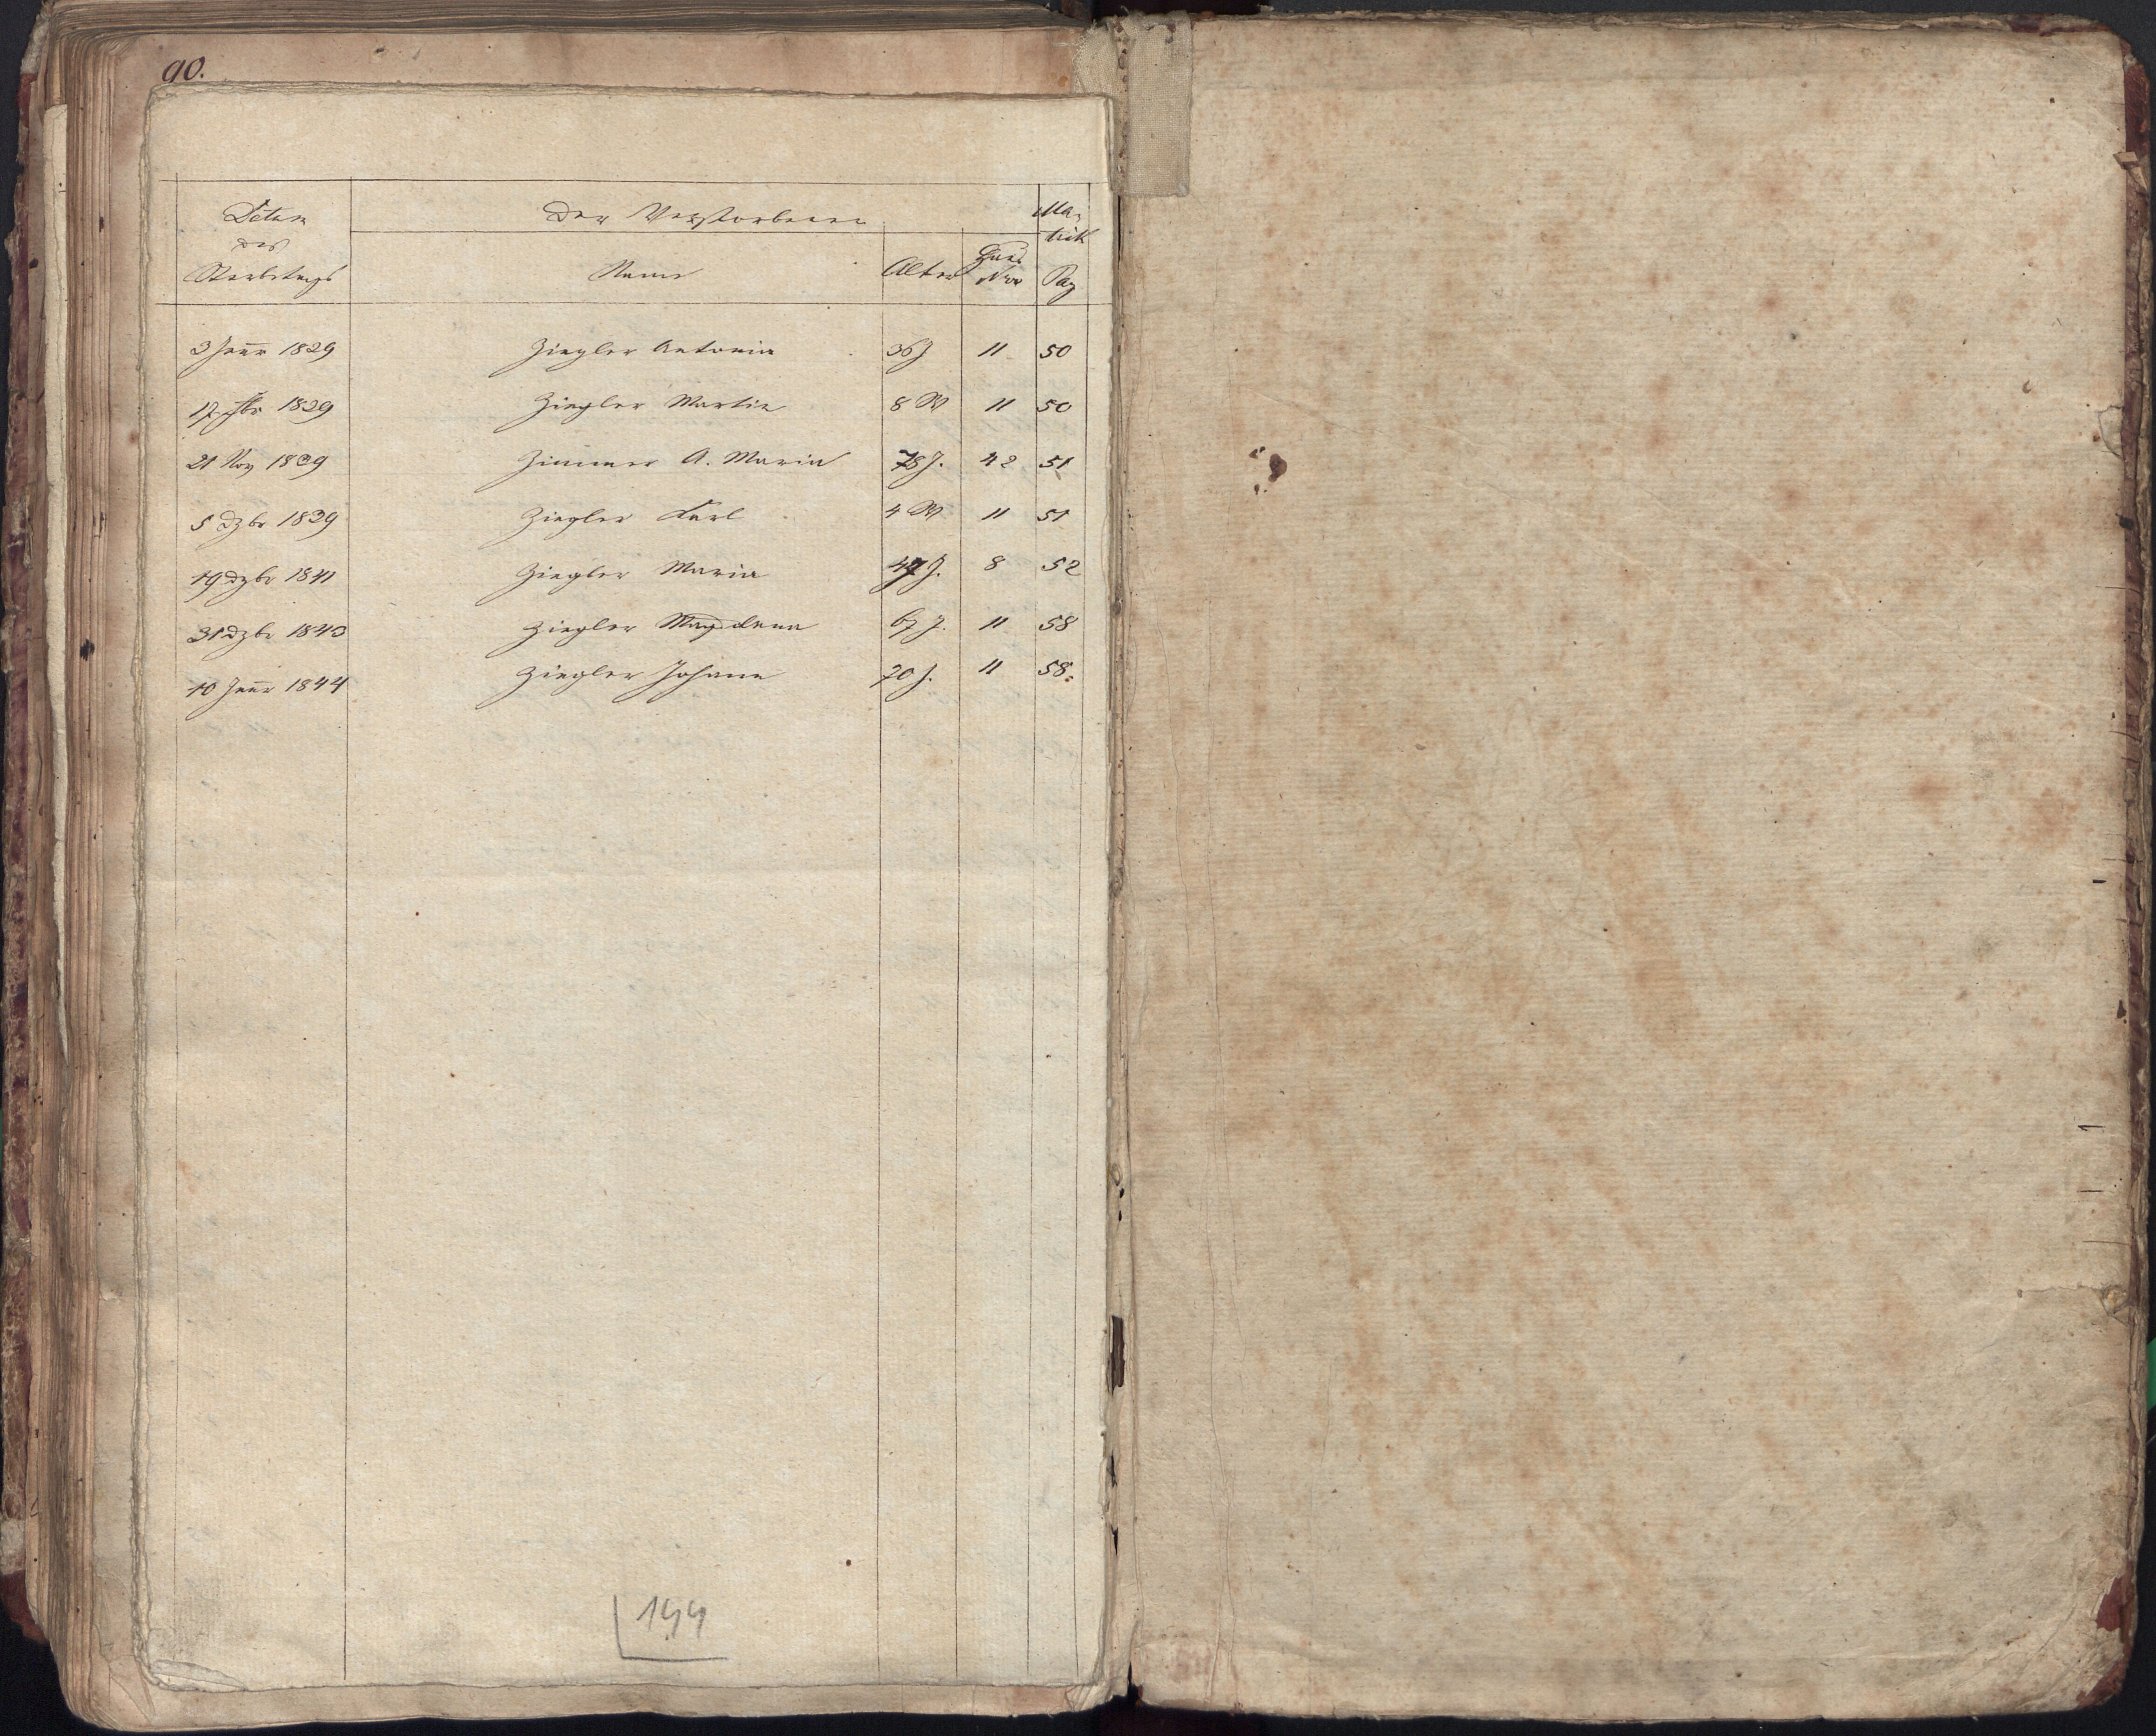 90.
Datum des Sterbetags
Der Verstorbenen
Name
Alter
Haus Nro
Ma- trik Pag
3 Jänr 1839 Ziegler Antonia 36 J 11 50
17 Fbr 1839 Ziegler Martin 8 W 11 50
21 Nov 1839 Zimmer A. Maria 78 J. 42 51
5 Dzbr 1839 Ziegler Karl 4 W 11 51
19 Dzbr 1841 Ziegler Maria J. 8 52
31 Dzbr 1843 Ziegler Magdlena 67 J. 11 58
10 Jänr 1844 Ziegler Johann 70 J. 11 58.
144